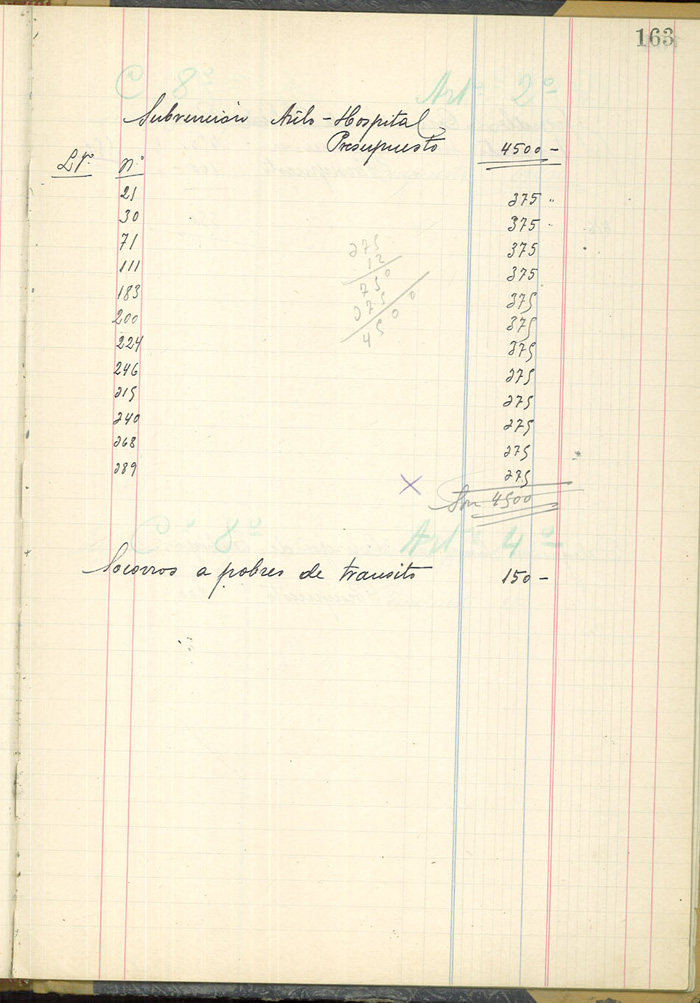 163
C 8º Art 2º
Subvención Asilo-Hospital
Presupuesto 4500-
Lº. nº
21 375 "
30 375 "
71 375
111 375
183 375
200 375
224 375
246 375
215 375
240 375
268 375
289 375
375
12
750
375
4500
X Son 4500
Cº 8º Artº 4º
Socorros a pobres de transito 150-